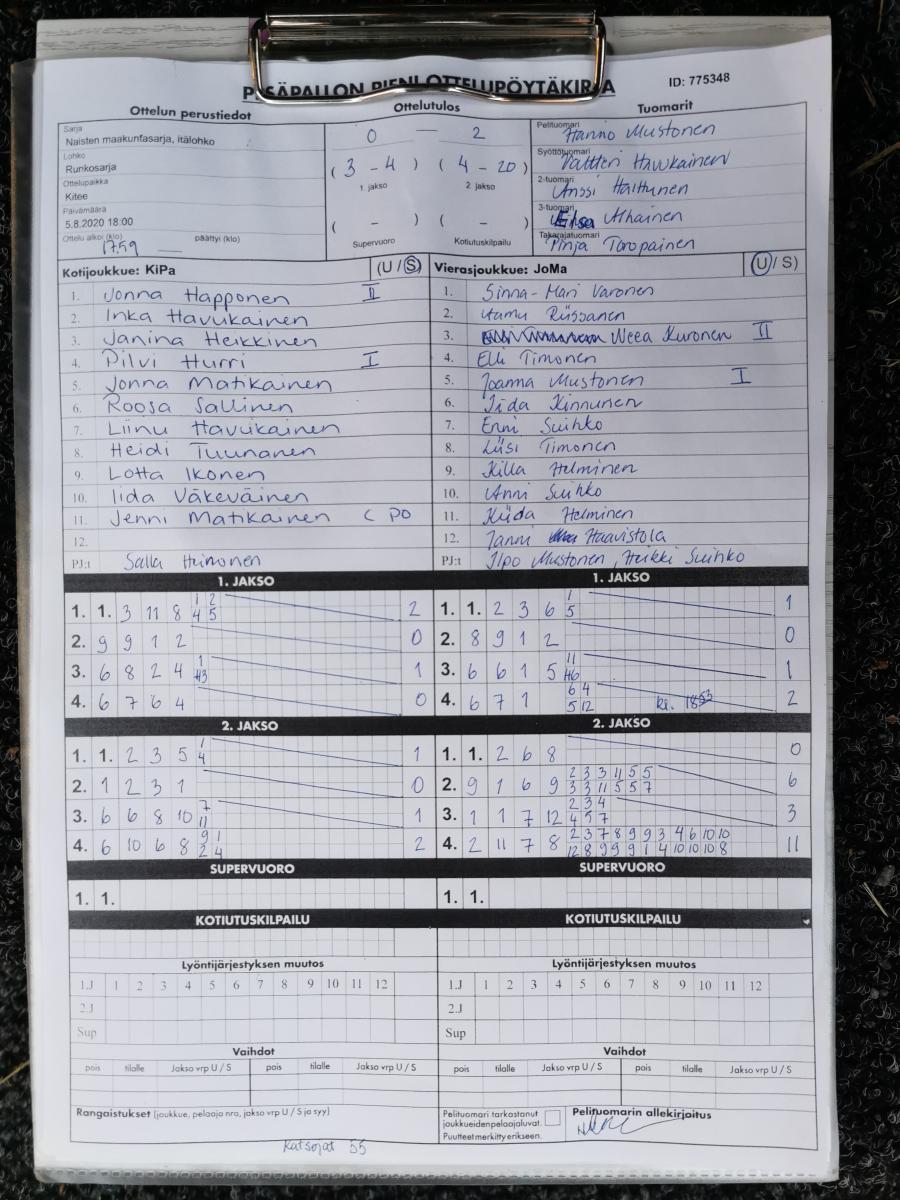 PESÄPALLON PIENI OTTELUPÖYTÄKIRJA
ID: 775348
Ottelun perustiedot
Ottelutulos
Tuomarit
Sarja
Naisten maakuntasarja, itälohko
Lohko
Runkosarja
Ottelupaikka
Kitee
Päivämäärä
5.8.2020 18:00
Ottelu alkoi (klo) 17.59 päättyi (klo)
0 — 2
( 3 - 4 ) ( 4 - 20 )
1. jakso 2. jakso
( - ) ( - )
Supervuoro Kotiutuskilpailu
Pelituomari
Hanno Mustonen
Syöttötuomari
Valtteri Havukainen
2-tuomari
Anssi Halttunen
3-tuomari
Elsa Alhainen
Takarajatuomari
Pinja Toropainen
Kotijoukkue: KiPa (U / S)
1. Jonna Happonen II
2. Inka Havukainen
3. Janina Heikkinen
4. Pilvi Hurri I
5. Jonna Matikainen
6. Roosa Sallinen
7. Liinu Havukainen
8. Heidi Tuunanen
9. Lotta Ikonen
10. Iida Väkeväinen
11. Jenni Matikainen C PO
12.
PJ:t Salla Heimonen
Vierasjoukkue: JoMa (U / S)
1. Sinna-Mari Varonen
2. Hamu Riissanen
3. Neea Kuronen II
4. Elli Timonen
5. Joanna Mustonen I
6. Iida Kinnunen
7. Enni Suihko
8. Liisi Timonen
9. Killa Helminen
10. Anni Suihko
11. Kiida Helminen
12. Janni Haavistola
PJ:t Ilpo Mustonen, Heikki Suihko
1. JAKSO
1 2
1. 1. 3 11 8 4 5 2
2. 9 9 1 2 0
1
3. 6 8 2 4 3 1
4. 6 7 6 4 0
1. JAKSO
1
1. 1. 2 3 6 5 1
2. 8 9 1 2 0
11
3. 6 6 1 5 6 1
6 4
4. 6 7 1 5 12 kl. 1853 2
2. JAKSO
1
1. 1. 2 3 5 4 1
2. 1 2 3 1 0
7
3. 6 6 8 10 11 1
9 1
4. 6 10 6 8 2 4 2
2. JAKSO
1. 1. 2 6 8 0
2 3 3 11 5 5
2. 9 1 6 9 3 3 11 5 5 7 6
2 3 4
3. 1 1 7 12 4 5 7 3
2 3 7 8 9 9 3 4 6 10 10
4. 2 11 7 8 12 8 9 9 9 1 4 10 10 10 8 11
SUPERVUORO
1. 1.
SUPERVUORO
1. 1.
KOTIUTUSKILPAILU
KOTIUTUSKILPAILU
Lyöntijärjestyksen muutos
1.J 1 2 3 4 5 6 7 8 9 10 11 12
2.J
Sup
Lyöntijärjestyksen muutos
1.J 1 2 3 4 5 6 7 8 9 10 11 12
2.J
Sup
Vaihdot
pois tilalle Jakso vrp U / S pois tilalle Jakso vrp U / S
Vaihdot
pois tilalle Jakso vrp U / S pois tilalle Jakso vrp U / S
Rangaistukset (joukkue, pelaaja nro, jakso vrp U / S ja syy)
Pelituomari tarkastanut
joukkueiden pelaajaluvat.
Puutteet merkitty erikseen.
Pelituomarin allekirjoitus
Katsojat 55